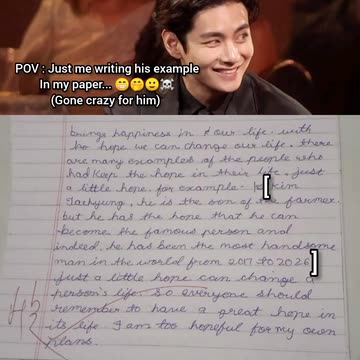 POV : Just me writing his example
In my paper... 😁🤭🙂☠️
(Gone crazy for him)
brings happiness in our life. with
hope we can change our life. there
are many examples of the people who
had keep the hope in their life. Just
a little hope. for example- kim
Taehyung, he is the son of the farmer.
but he has the hope that he can
become the famous person and
indeed, he has been the most handsome
man in the world from 2017 to 2026
Just a little hope can change a
person's life. so everyone should
remember to have a great hope in
its life. I am too hopeful for my own
plans.